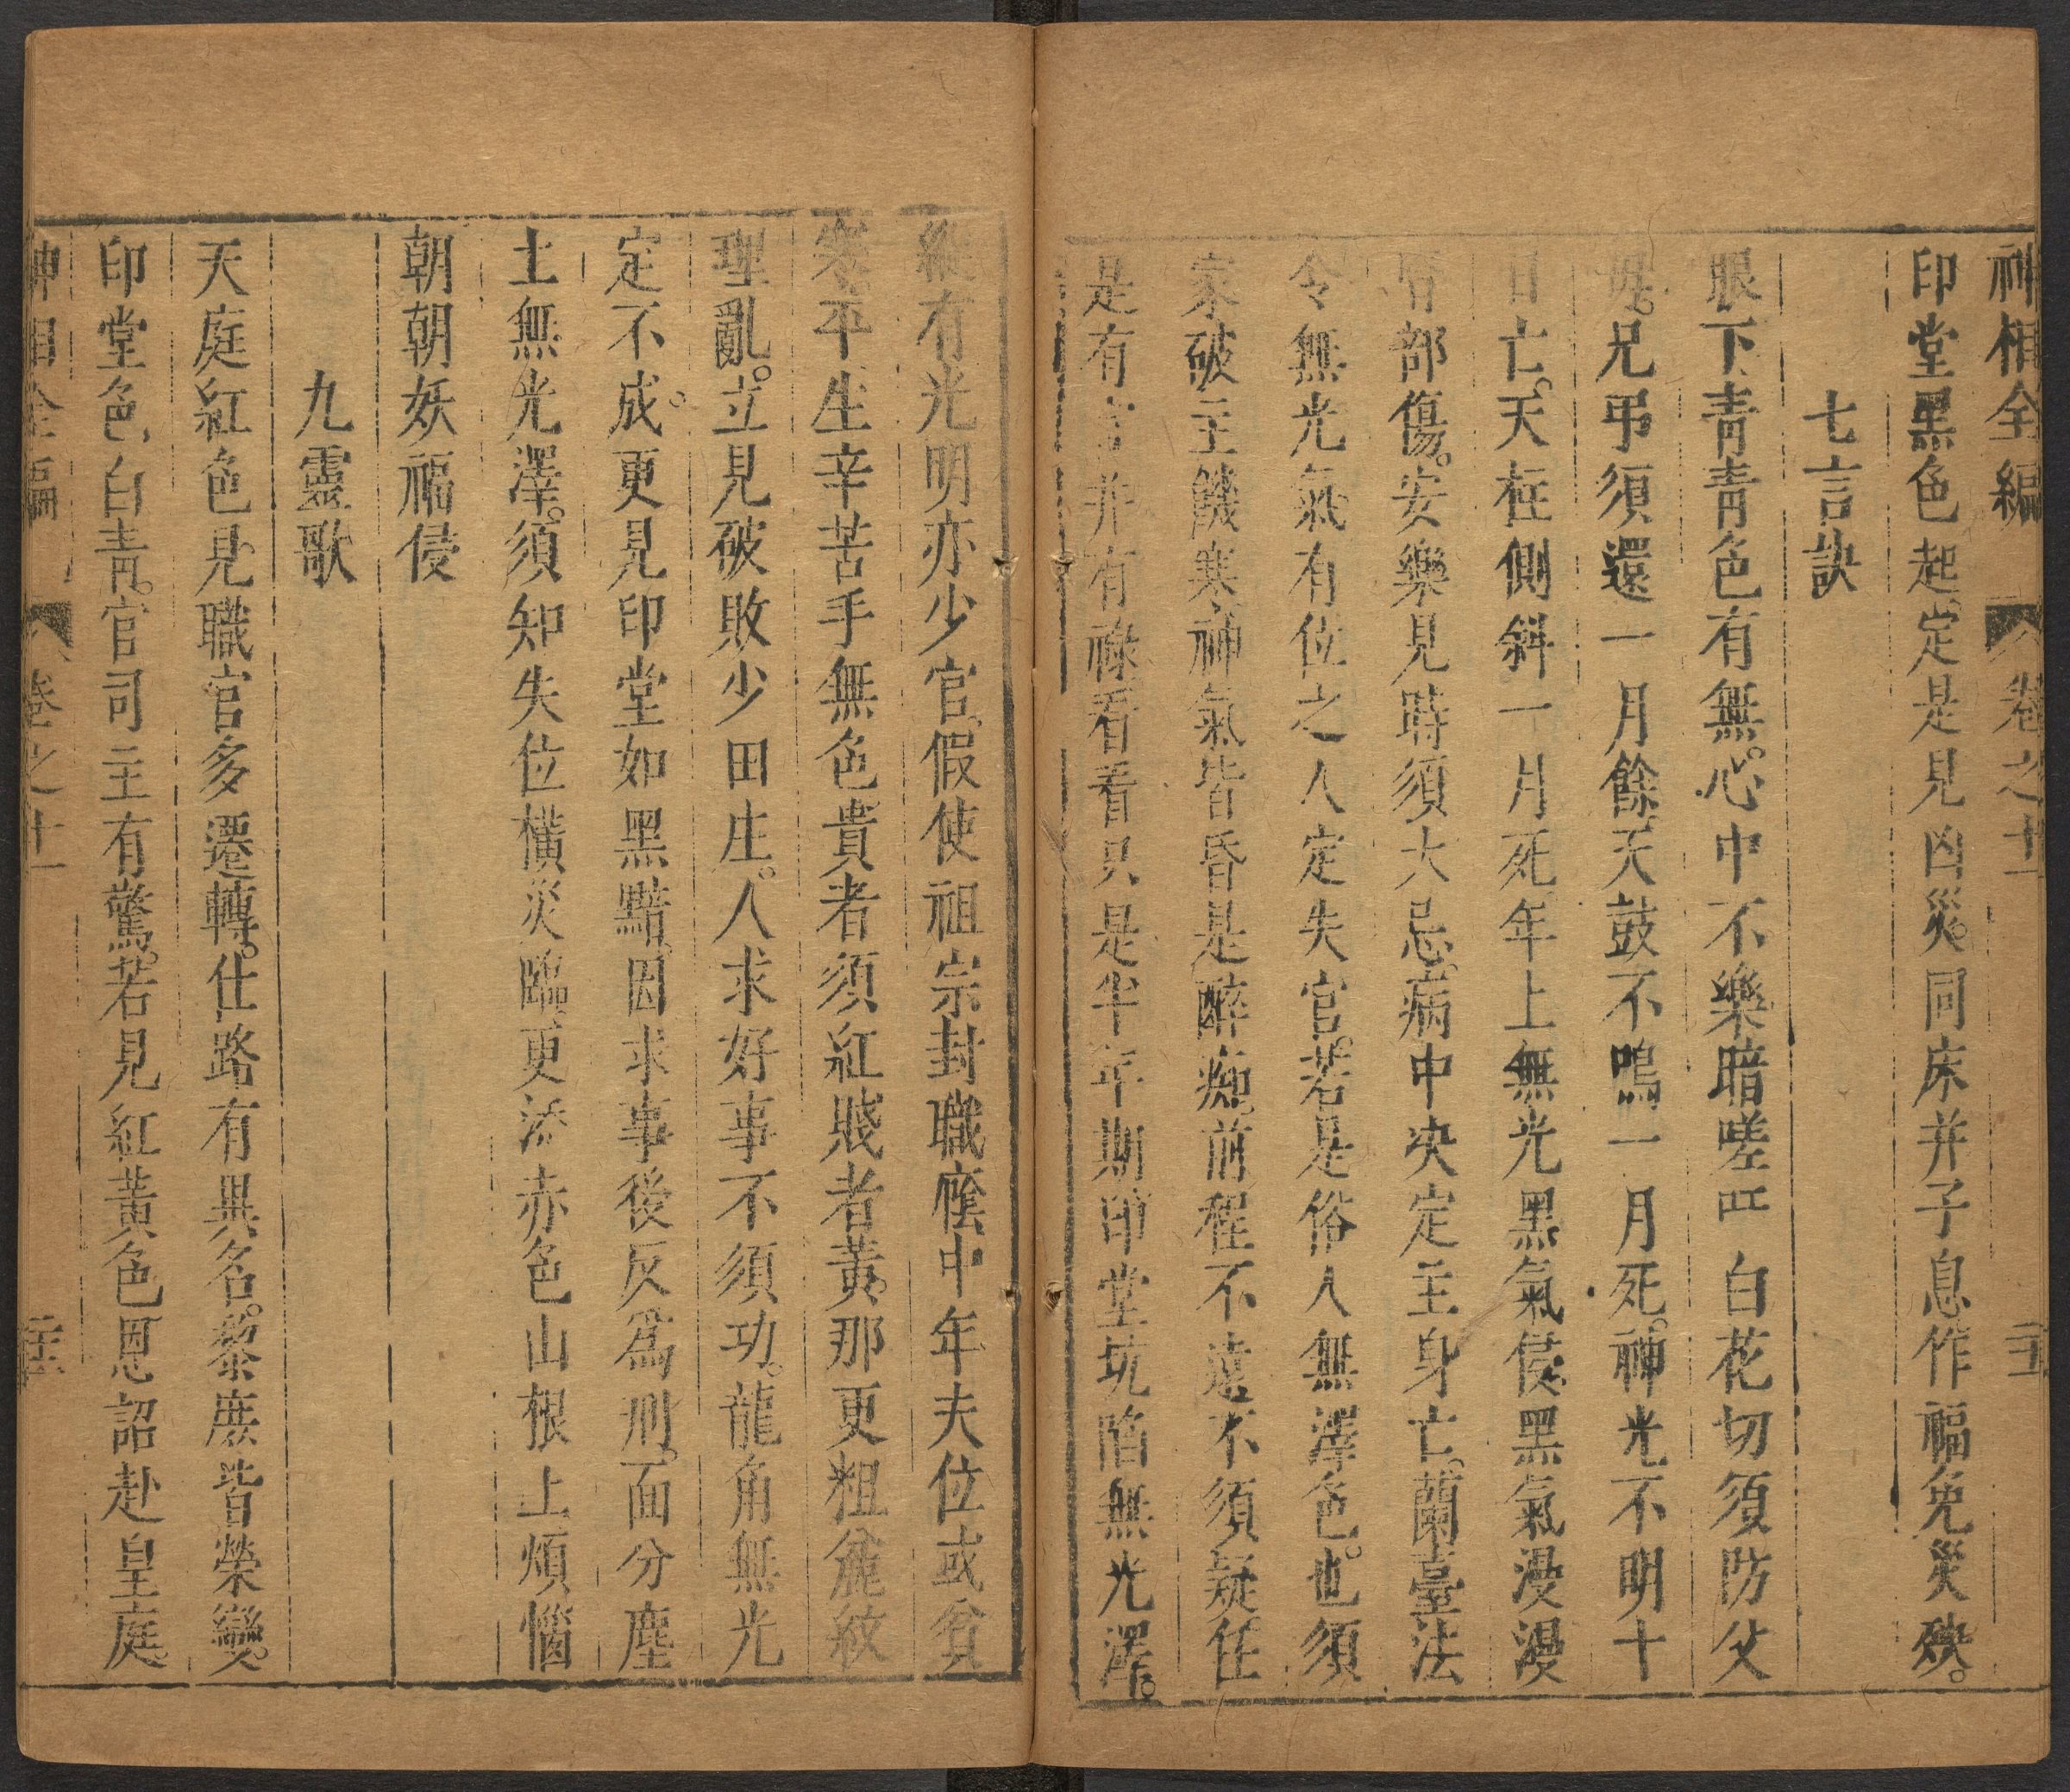 神相全編 卷之十一
印堂黑色起定是見凶災。同床并子息作福免災殃。
七言訣
眼下青青色有無。心中不樂暗嗟吁白花切須防父
母。兄弔須還一月餘天鼓不鳴一月死。神光不明十
日亡。天柱側斜一月死年上無光黑氣侵黑氣漫漫
部傷。安樂見時須大忌。病中決定主身亡。蘭臺法
令無光氣有位之人定失官。若是俗人無澤色。也須
家破主饑寒神氣皆昏是醉痴。前程不遠不須疑任
是有官并有祿看看只是半年期印堂坑陷無光澤。
縱有光明亦少官。假使祖宗封職廕中年夫位或貧
寒。平生辛苦手無色貴者須紅賤者黃。那更粗麄紋
理亂。立見破敗少田庄。人求好事不須功。龍角無光
定不成。更見印堂如黑黯。因求事後反爲刑。面分塵
土無光澤。須知失位橫災臨。更添赤色山根上煩惱
朝朝妖福侵
九靈歌
天庭紅色見職官多遷轉。仕路有異名。黎庶皆榮變。
印堂色白青。官司主有驚。若見紅黃色恩詔赴皇庭。
神相全編 卷之十一